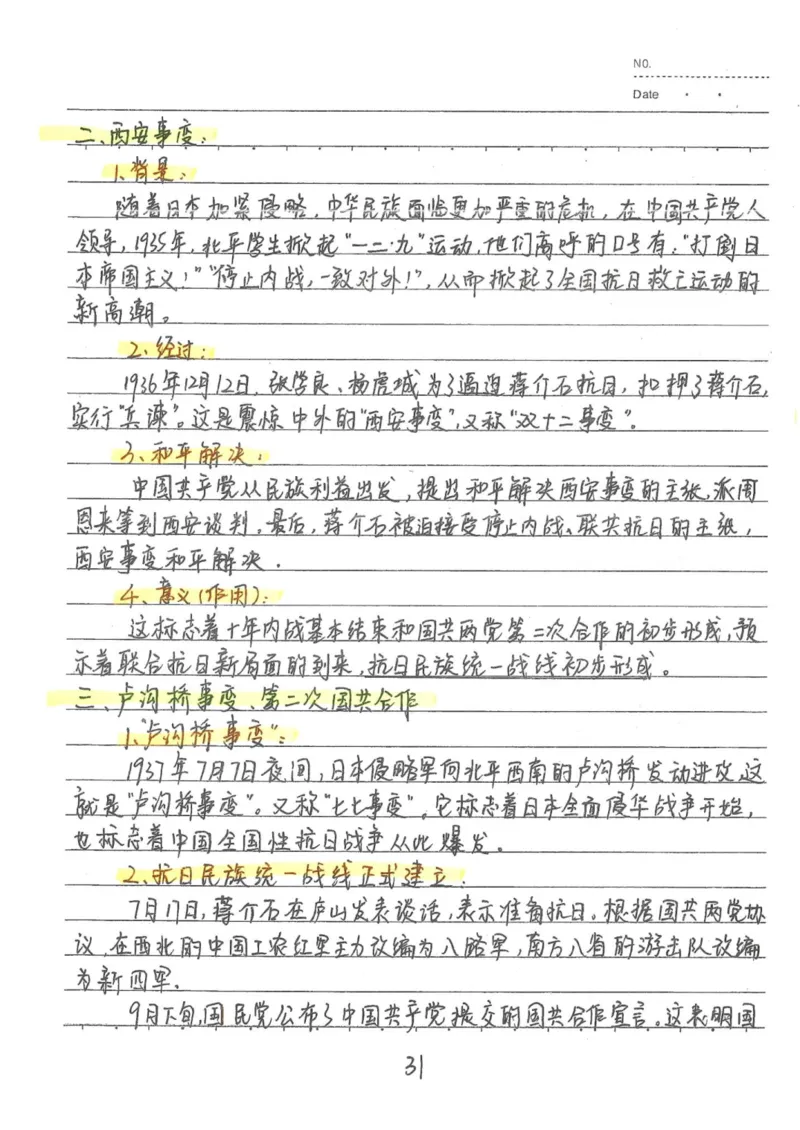 NO.
Date
二、西安事变:
1、背景:
随着日本加紧侵略,中华民族面临更加严重的危机,在中国共产党人
领导,1935年,北平学生掀起"一二·九"运动,他们高呼的口号有:"打倒日
本帝国主义!""停止内战,一致对外!",从而掀起了全国抗日救亡运动的
新高潮。
2、经过:
1936年12月12日,张学良、杨虎城为了逼迫蒋介石抗日,扣押了蒋介石,
实行"兵谏"。这是震惊中外的"西安事变",又称"双十二事变"。
3、和平解决:
中国共产党从民族利益出发,提出和平解决西安事变的主张,派周
恩来等到西安谈判。最后,蒋介石被迫接受停止内战、联共抗日的主张,
西安事变和平解决.
4、意义(作用):
这标志着十年内战基本结束和国共两党第二次合作的初步形成,预
示着联合抗日新局面的到来,抗日民族统一战线初步形成。
三、卢沟桥事变、第二次国共合作
1、"卢沟桥事变":
1937年7月7日夜间,日本侵略军向北平西南的卢沟桥发动进攻,这
就是"卢沟桥事变"。又称"七七事变"。它标志着日本全面侵华战争开始,
也标志着中国全国性抗日战争从此爆发。
2、抗日民族统一战线正式建立:
7月17日,蒋介石在庐山发表谈话,表示准备抗日。根据国共两党协
议,在西北的中国工农红军主力改编为八路军,南方八省的游击队改编
为新四军.
9月下旬,国民党公布了中国共产党提交的国共合作宣言。这表明国
31